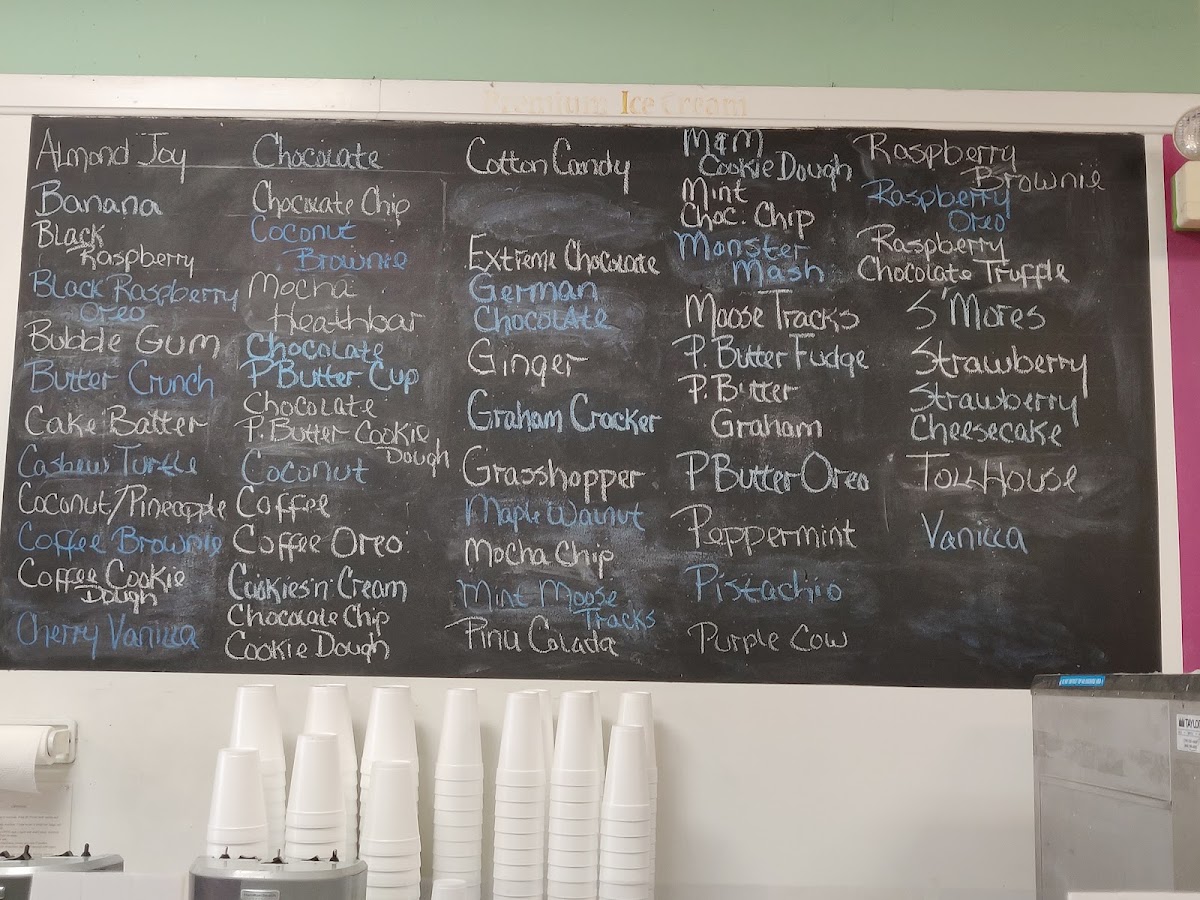 Premium Ice Cream
Almond Joy
Banana
Black
Raspberry
Black Raspberry
Oreo
Bubble Gum
Butter Crunch
Cake Batter
Cashew Turtle
Coconut/Pineapple
Coffee Brownie
Coffee Cookie
Dough
Cherry Vanilla
Chocolate
Chocolate Chip
Coconut
Brownie
Mocha
Heathbar
Chocolate
P.Butter Cup
Chocolate
P.Butter Cookie
Dough
Coconut
Coffee
Coffee Oreo
Cookies n' Cream
Chocolate Chip
Cookie Dough
Cotton Candy
Extreme Chocolate
German
Chocolate
Ginger
Graham Cracker
Grasshopper
Maple Walnut
Mocha Chip
Mint Moose
Tracks
Pinu Colada
M&M
Cookie Dough
Mint
Choc. Chip
Monster
Mash
Moose Tracks
P.Butter Fudge
P.Butter
Graham
P.Butter Oreo
Peppermint
Pistachio
Purple Cow
Raspberry
Brownie
Raspberry
Oreo
Raspberry
Chocolate Truffle
S'Mores
Strawberry
Strawberry
Cheesecake
TollHouse
Vanilla
TAYLOR